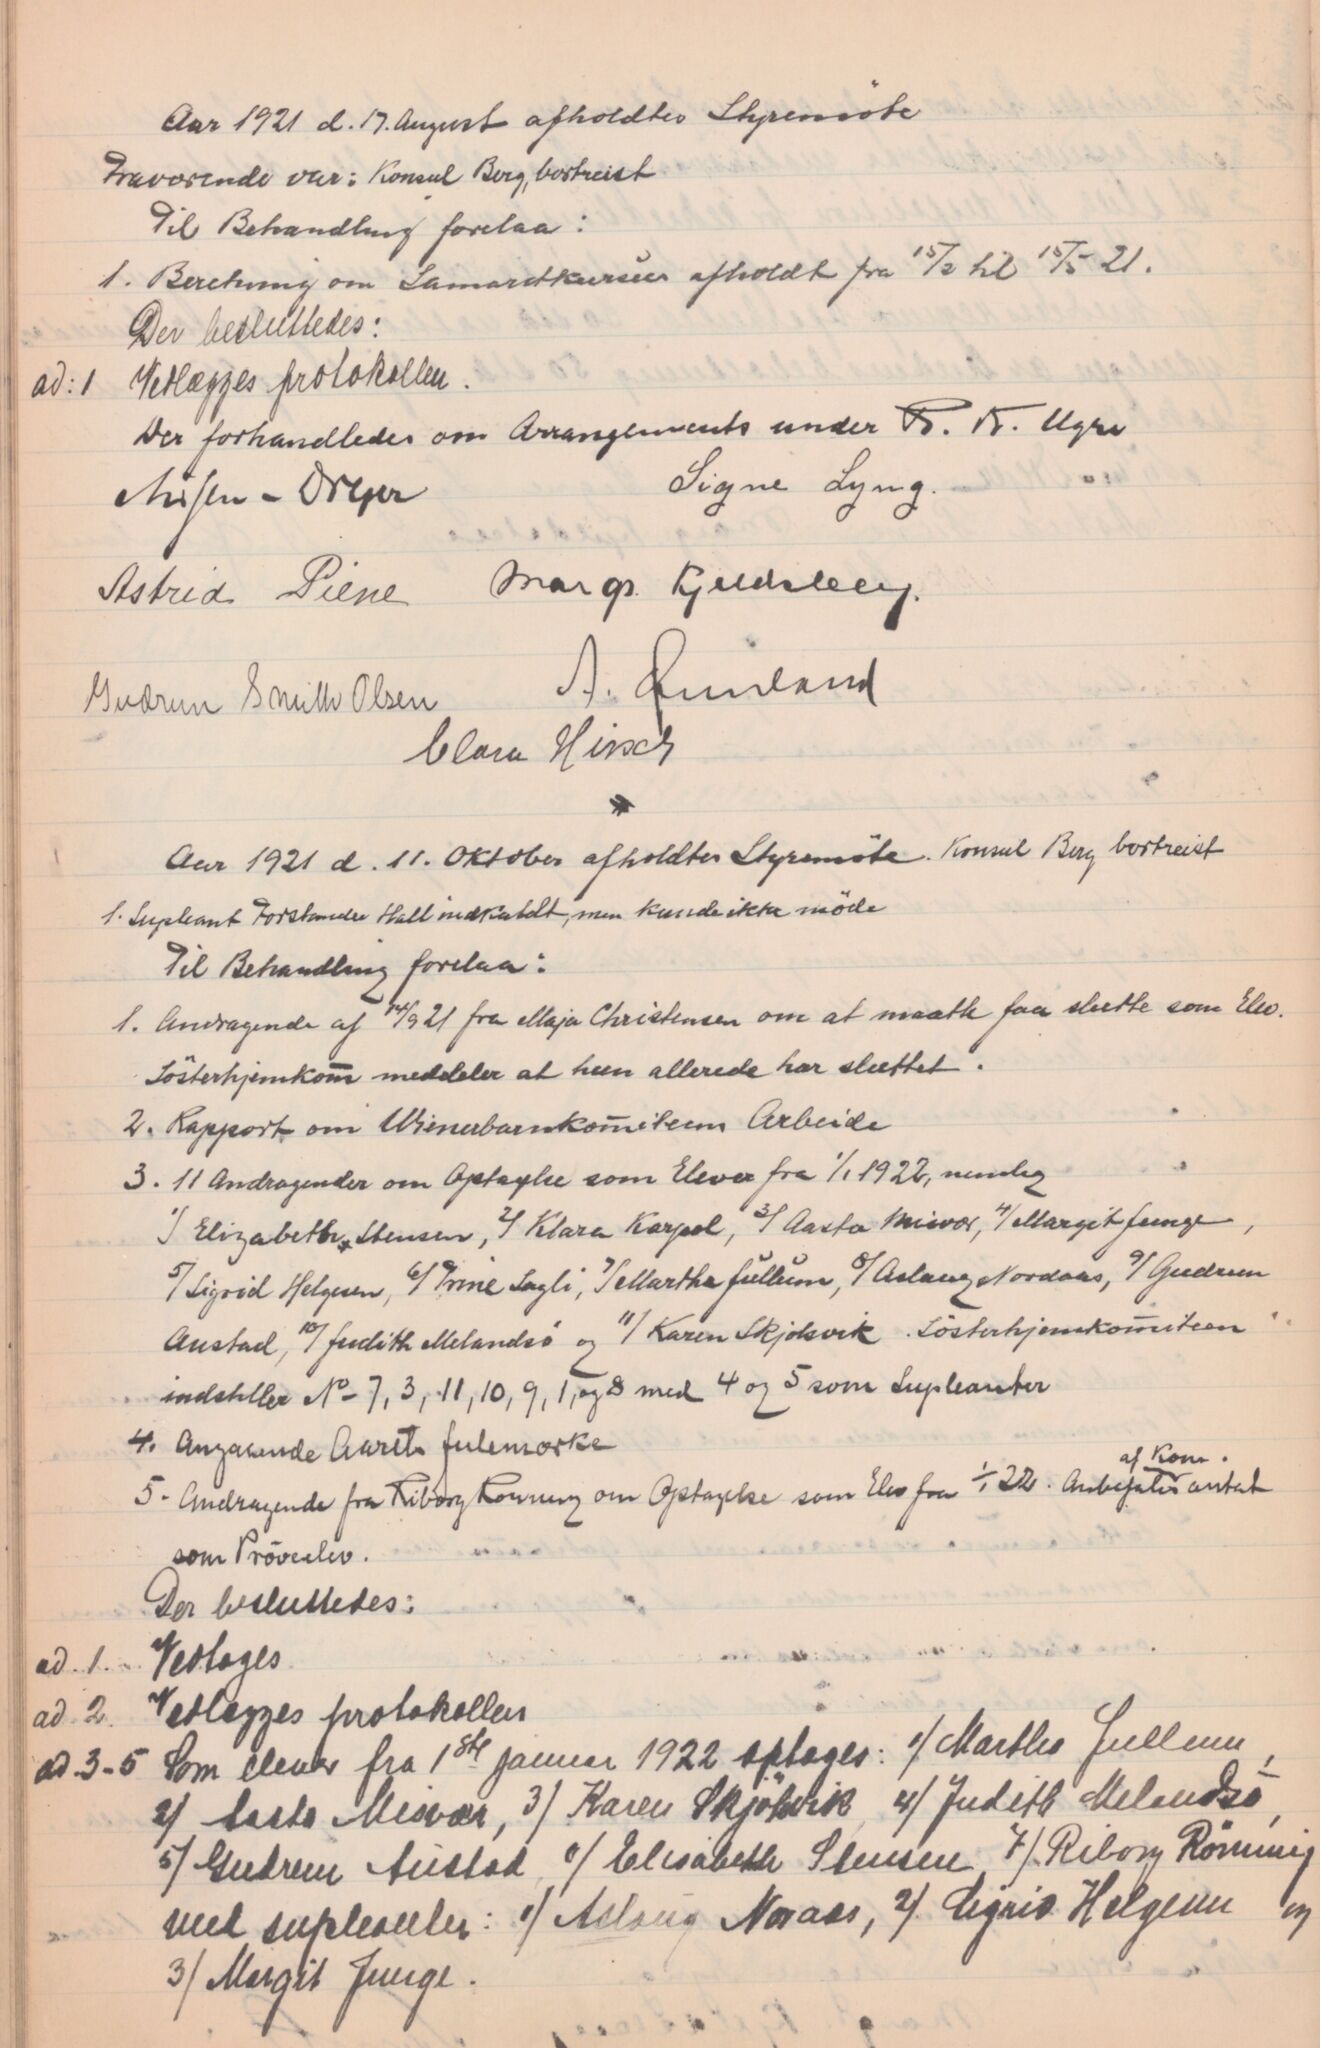 Aar 1921 d. 17. August afholdtes Styremöte
Fraværende var: Konsul Berg, bortreist
Til Behandling forelaa:
1. Beretning om Samaritkursus afholdt fra 15/2 til 15/5 21.
Der besluttedes:
ad: 1 Vedlægges protokollen.
Der forhandledes om Arrangements under R. K. Ugen
Nissen-Dreyer Signe Lyng.
Astrid Piene Margr. Kjeldsberg.
Gudrun Smith Olsen A.
Clara Hirsch
Aar 1921 d. 11. Oktober afholdtes Styremöte. Konsul Berg bortreist
1. Supleant Forstander Hall indkaldt, men kunde ikke möde
Til Behandling forelaa:
1. Andragende af 14/9 21 fra Maja Christensen om at maatte faa slutte som Elev.
Sösterhjemkom̅ meddeler at hun allerede har sluttet.
2. Rapport om Wienerbarnkom̅iteens Arbeide
3. 11 Andragender om Optagelse som Elever fra 1/1 1922, nemlig
1/ Elizabeth Stensen, 2/ Klara Karpol, 3/ Aasta Misvær, 4/ Margit Junge,
5/ Sigrid Helgesen, 6/ Trine Sagli, 7/ Martha Jullum, 8/ Aslaug Nordaas, 9/ Gudrun
Austad, 10/ Judith Melandsö og 11/ Karen Skjölsvik. Sösterhjemkom̅iteen
indstiller No 7, 3, 11, 10, 9, 1, og 8 med 4 og 5 som Supleanter
4. Angaaende Aarets Julemærke
5. Andragende fra Riborg Rönning om Optagelse som Elev fra 1/1 22. Anbefales af Kom. antat
som Pröveelev.
Der besluttedes:
ad. 1. Vedtoges
ad. 2. Vedlægges protokollen
ad. 3-5 Som elever fra 1ste januar 1922 optages: 1/ Martha Jullum,
2/ Aasta Misvær, 3/ Karen Skjölsvik, 4/ Judith Melandsö,
5/ Gudrun Austad, 6/ Elisabeth Stensen, 7/ Riborg Rönning
med supleanter: 1/ Aslaug Noraas, 2/ Sigrid Helgesen og
3/ Margit Junge.